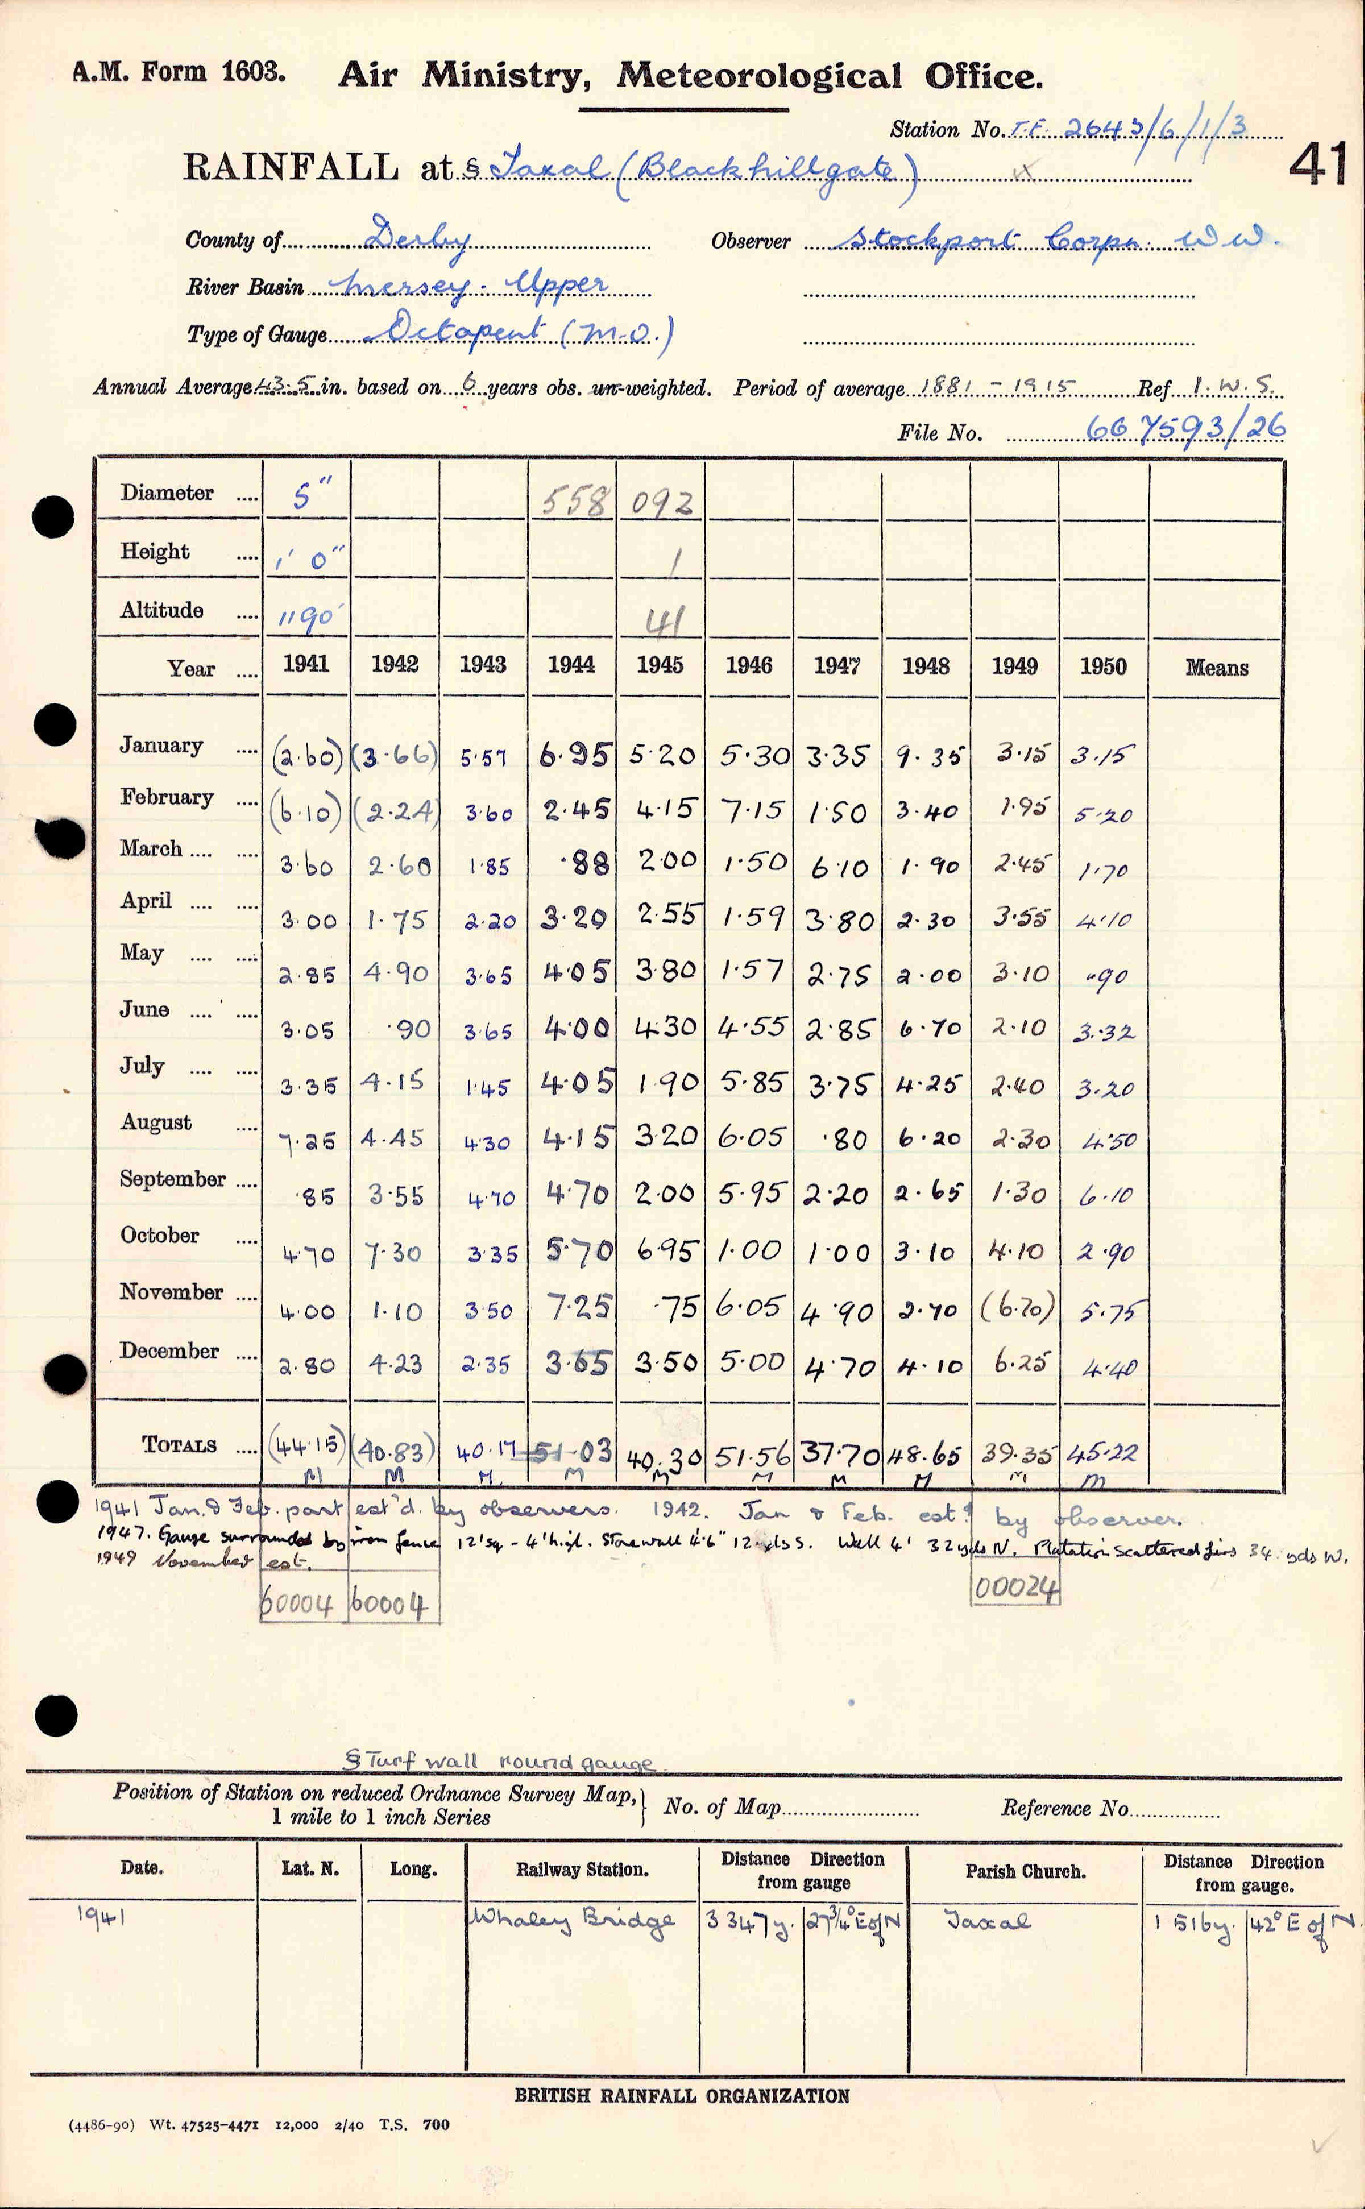 A.M. Form 1603. Air Ministry, Meteorological Office.
Station No. T.F. 2643/6/1/3
RAINFALL at § Taxal (Blackhillgate)
41
County of Derby Observer Stockport Corpn. W.W.
River Basin Mersey - Upper
Type of Gauge Octapent (M.O.)
Annual Average 43.5 in. based on 6 years obs. un-weighted. Period of average 1881 - 1915 Ref I.W.S.
File No. 667593/26
Diameter .... 5" 558 092
Height .... 1' 0" 1
Altitude .... 1190' 41
Year .... 1941 1942 1943 1944 1945 1946 1947 1948 1949 1950 Means
January .... (2.60) (3.66) 5.57 6.95 5.20 5.30 3.35 9.35 3.15 3.15
February .... (6.10) (2.24) 3.60 2.45 4.15 7.15 1.50 3.40 1.95 5.20
March .... .... 3.60 2.60 1.85 .88 2.00 1.50 6.10 1.90 2.45 1.70
April .... .... 3.00 1.75 2.20 3.20 2.55 1.59 3.80 2.30 3.55 4.10
May .... .... 2.85 4.90 3.65 4.05 3.80 1.57 2.75 2.00 3.10 .90
June .... .... 3.05 .90 3.65 4.00 4.30 4.55 2.85 6.70 2.10 3.32
July .... .... 3.35 4.15 1.45 4.05 1.90 5.85 3.75 4.25 2.40 3.20
August .... 7.25 4.45 4.30 4.15 3.20 6.05 .80 6.20 2.30 4.50
September .... .85 3.55 4.70 4.70 2.00 5.95 2.20 2.65 1.30 6.10
October .... 4.70 7.30 3.35 5.70 6.95 1.00 1.00 3.10 4.10 2.90
November .... 4.00 1.10 3.50 7.25 .75 6.05 4.90 2.70 (6.70) 5.75
December .... 2.80 4.23 2.35 3.65 3.50 5.00 4.70 4.10 6.25 4.40
TOTALS .... (44.15) (40.83) 40.17 51.03 40.30 51.56 37.70 48.65 39.35 45.22
M M M M M M M M M M
1941 Jan. & Feb. part est'd. by observers. 1942. Jan & Feb. est.d by observer.
1947. Gauge surrounded by iron fence 12' sq - 4' high. Stonewall 4'6" 12 yds S. Wall 4' 32 yds N. Platation scattered firs 34 yds W.
1949 November est.
60004 60004 00024
§ Turf wall round gauge.
Position of Station on reduced Ordnance Survey Map, 1 mile to 1 inch Series } No. of Map Reference No.
Date. Lat. N. Long. Railway Station. Distance Direction from gauge Parish Church. Distance Direction from gauge.
1941 Whaley Bridge 3347y. 27¾° E of N Taxal 1516y. 42° E of N
BRITISH RAINFALL ORGANIZATION
(4486-90) Wt. 47525-4471 12,000 2/40 T.S. 700